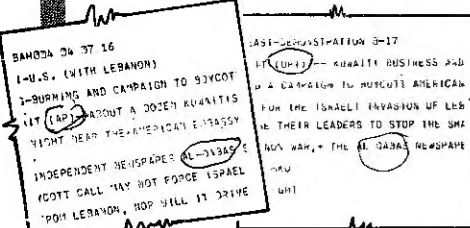 BAH034 04 07 16
I-U.S. (WITH LEBANON)
-BURNING AND CAMPAIGN TO BOYCOT
IT (AP)--ABOUT A DOZEN KUWAITIS
NIGHT NEAR THE AMERICAN EMBASSY
INDEPENDENT NEWSPAPER AL-QABAS S
YCOTT CALL MAY NOT FORCE ISRAEL
FROM LEBANON, NOR WILL IT DRIVE
EAST-DEMONSTRATION 8-17
IT (UPI) -- KUWAITI BUSINESS AND
D A CAMPAIGN TO BOYCOTT AMERICAN
FOR THE ISRAELI INVASION OF LEB
E THEIR LEADERS TO STOP THE
NON WAR, THE AL QABAS NEWSPAPE